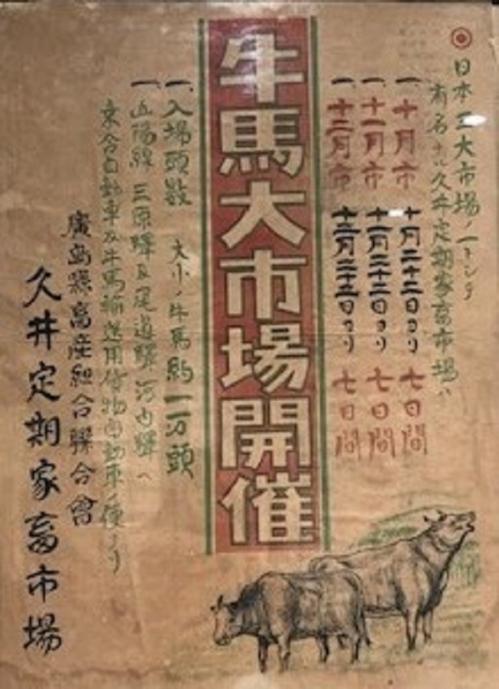 ◉日本三大市場ノ一トシテ
有名ナル久井定期家畜市場ハ
一、十月市 十月二十二日ヨリ 七日間
一、十一月市 十一月二十二日ヨリ 七日間
一、十二月市 十二月二十二日ヨリ 七日間
牛馬大市場開催
一、入場頭数 大小ノ牛馬約一万頭
一、山陽線 三原驛及尾道驛河内驛ヘ
乗合自動車及牛馬輸送用貨物自動車ノ便アリ
廣島縣畜産組合聯合會
久井定期家畜市場